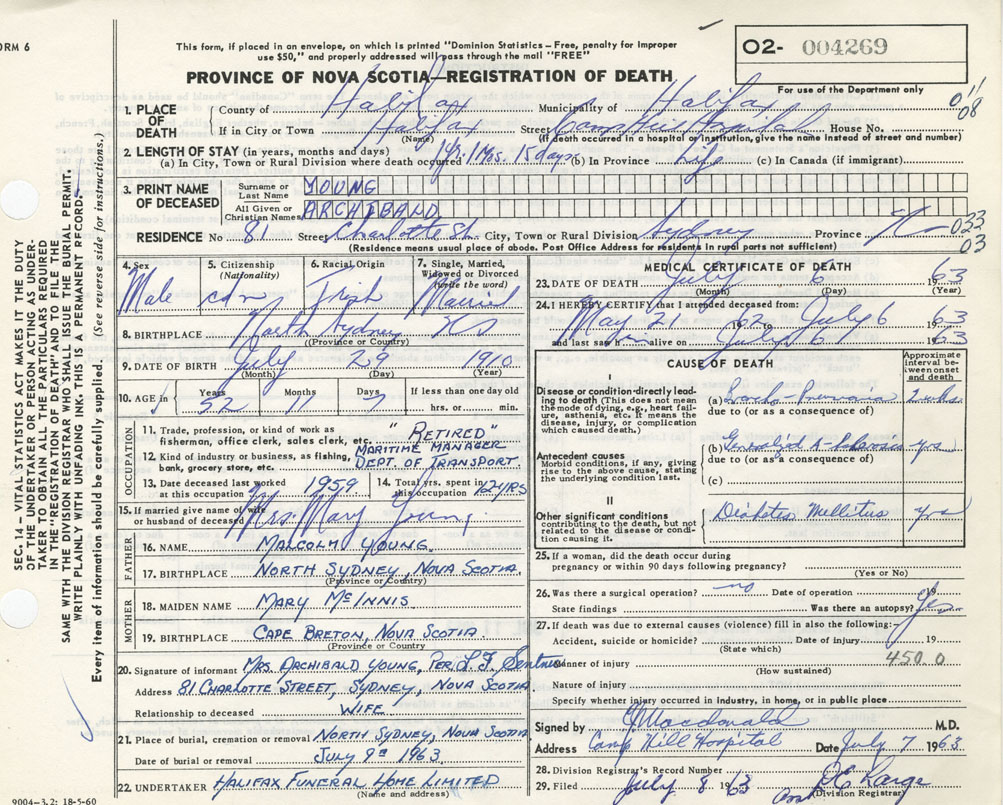 ORM 6
This form, if placed in an envelope, on which is printed "Dominion Statistics – Free, penalty for Improper
use $50," and properly addressed will pass through the mail "FREE"
PROVINCE OF NOVA SCOTIA—REGISTRATION OF DEATH
O2- 004269
For use of the Department only
08
1. PLACE OF DEATH
County of Halifax Municipality of Halifax
If in City or Town Halifax Street Camp Hill Hospital House No.
(Name) (If death occurred in a hospital or institution, give name instead of street and number)
2. LENGTH OF STAY (in years, months and days)
(a) In City, Town or Rural Division where death occurred 1 yr. 1 Mos. 15 days (b) In Province Life (c) In Canada (if immigrant)
3. PRINT NAME OF DECEASED
Surname or Last Name YOUNG
All Given or Christian Names ARCHIBALD
RESIDENCE No 81 Street Charlotte St. City, Town or Rural Division Sydney Province
033
03
(Residence means usual place of abode. Post Office Address for residents in rural parts not sufficient)
4. Sex Male
5. Citizenship (Nationality) cdn
6. Racial Origin Irish
7. Single, Married, Widowed or Divorced (write the word) Married
8. BIRTHPLACE North Sydney NS
(Province or Country)
9. DATE OF BIRTH July 29 1910
(Month) (Day) (Year)
10. AGE in Years 52 Months 11 Days 7 If less than one day old
hrs. or min.
OCCUPATION
11. Trade, profession, or kind of work as fisherman, office clerk, sales clerk, etc. "RETIRED"
12. Kind of industry or business, as fishing, bank, grocery store, etc. MARITIME MANAGER DEPT. OF TRANSPORT
13. Date deceased last worked at this occupation 1959 14. Total yrs. spent in this occupation 12 YRS
15. If married give name of wife or husband of deceased Mrs. Mary Young.
FATHER
16. NAME MALCOLM YOUNG.
17. BIRTHPLACE NORTH SYDNEY, NOVA SCOTIA.
(Province or Country)
MOTHER
18. MAIDEN NAME MARY MCINNIS
19. BIRTHPLACE CAPE BRETON, NOVA SCOTIA
(Province or Country
20. Signature of informant MRS. ARCHIBALD YOUNG, PER.
Address 81 CHARLOTTE STREET, SYDNEY, NOVA SCOTIA
Relationship to deceased WIFE
21. Place of burial, cremation or removal NORTH SYDNEY, NOVA SCOTIA
Date of burial or removal JULY 9th 1963
22. UNDERTAKER HALIFAX FUNERAL HOME LIMITED
(Name and address)
9004–3.2: 18-5-60
MEDICAL CERTIFICATE OF DEATH
23. DATE OF DEATH July 6 1963
(Month) (Day) (Year)
24. I HEREBY CERTIFY that I attended deceased from:
May 21 1962 to July 6 1963
and last saw him alive on July 6 1963
CAUSE OF DEATH
Approximate interval between onset and death
I
Disease or condition directly leading to death (This does not mean the mode of dying, e.g., heart failure, asthenia, etc. It means the disease, injury, or complication which caused death.)
(a) 2 wks.
due to (or as a consequence of)
Antecedent causes
Morbid conditions, if any, giving rise to the above cause, stating the underlying condition last.
(b) yrs
due to (or as a consequence of)
(c)
II
Other significant conditions contributing to the death, but not related to the disease or condition causing it.
Diabetes Mellitus yrs
25. If a woman, did the death occur during
pregnancy or within 90 days following pregnancy?
(Yes or No)
26. Was there a surgical operation? no Date of operation 19
State findings Was there an autopsy? Yes
27. If death was due to external causes (violence) fill in also the following:
Accident, suicide or homicide? Date of injury 19
(State which)
Manner of injury 450.0
(How sustained)
Nature of injury
Specify whether injury occurred in industry, in home, or in public place
Signed by J Macdonald M.D.
Address Camp Hill Hospital Date July 7 1963
28. Division Registrar's Record Number
29. Filed July 8 1963
(Division Registrar)
SEC. 14 – VITAL STATISTICS ACT MAKES IT THE DUTY
OF THE UNDERTAKER OR PERSON ACTING AS UNDER-
TAKER TO OBTAIN ALL THE PARTICULARS REQUIRED
IN THE "REGISTRATION OF DEATH" AND TO FILE THE
SAME WITH THE DIVISION REGISTRAR WHO SHALL ISSUE THE BURIAL PERMIT.
WRITE PLAINLY WITH UNFADING INK. THIS IS A PERMANENT RECORD.
Every item of information should be carefully supplied. (See reverse side for instructions.)